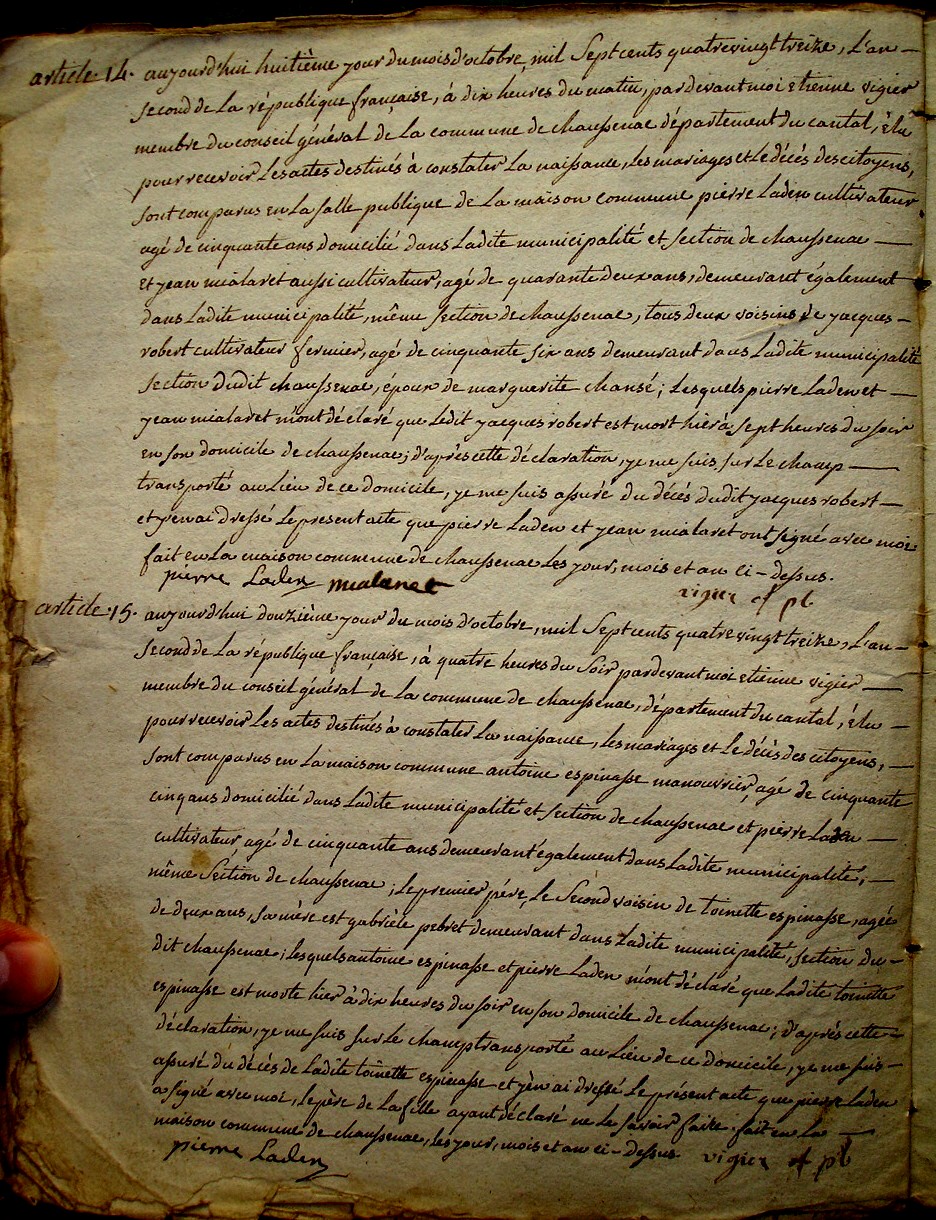 article 14. aujourd'hui huitième jour du mois d'octobre, mil Sept cents quatrevingt treize, L'an –
second de La république française, à dix heures du matin, pardevant moi etienne vigier
membre du conseil général de La commune de chaussenac département du cantal, élu
pour recevoir Les actes destinés à constater La naissance, Les mariages et Le décès des citoyens,
sont comparus en La salle publique de La maison commune pierre Laden cultivateur
agé de cinquante ans domicilié dans Ladite municipalité et section de chaussenac —
et jean mialaret aussi cultivateur, agé de quarante deux ans, demeurant également
dans Ladite municipalité, même section de chaussenac, tous deux voisins de jacques –
robert cultivateur fermier, agé de cinquante six ans demeurant dans Ladite municipalité
section dudit chaussenac, époux de marguerite chansé ; Lesquels pierre Laden et —
jean mialaret m'ont déclaré que Ledit jacques robert est mort hier à sept heures du soir
en son domicile de chaussenac ; d'après cette déclaration, je me suis sur Le champ —
transporté au Lieu de ce domicile, je me suis assuré du décès dudit jacques robert —
et j'en ai dressé Le present acte que pierre Laden et jean mialaret ont signé avec moi
fait en La maison commune de chaussenac Les jour, mois et an ci-dessus.
pierre Laden mialaret vigier of pb
article 15. aujourd'hui douzième jour du mois d'octobre, mil Sept cents quatrevingt treize, L'an –
second de La république française, à quatre heures du Soir pardevant moi etienne vigier —
membre du conseil général de La commune de chaussenac, département du cantal, élu –
pour recevoir Les actes destinés à constater La naissance, Les mariages et Le décès des citoyens, —
sont comparus en La maison commune antoine espinasse manouvrier, agé de cinquante
cinq ans domicilié dans Ladite municipalité et section de chaussenac et pierre Laden —
cultivateur, agé de cinquante ans demeurant également dans Ladite municipalité, —
même Séction de chaussenac ; Le premier père, Le Second voisin de toinette espinasse, agée
de deux ans, sa mère est gabrièle pebret demeurant dans Ladite municipalité, section du –
dit chaussenac ; Lesquels antoine espinasse et pierre Laden m'ont déclaré que Ladite toinette
espinasse est morte hier à dix heures du soir en son domicile de chaussenac ; d'après cette –
déclaration, je me suis sur Le champ transporté au Lieu de ce domicile, je me suis –
assuré du décès de Ladite toinette espinasse et j'en ai dressé Le présent acte que pierre Laden
a signé avec moi, Le père de La fille ayant déclaré ne Le savoir faire . fait en La —
maison commune de chaussenac, Les jour, mois et an ci-dessus
pierre Laden vigier of pb